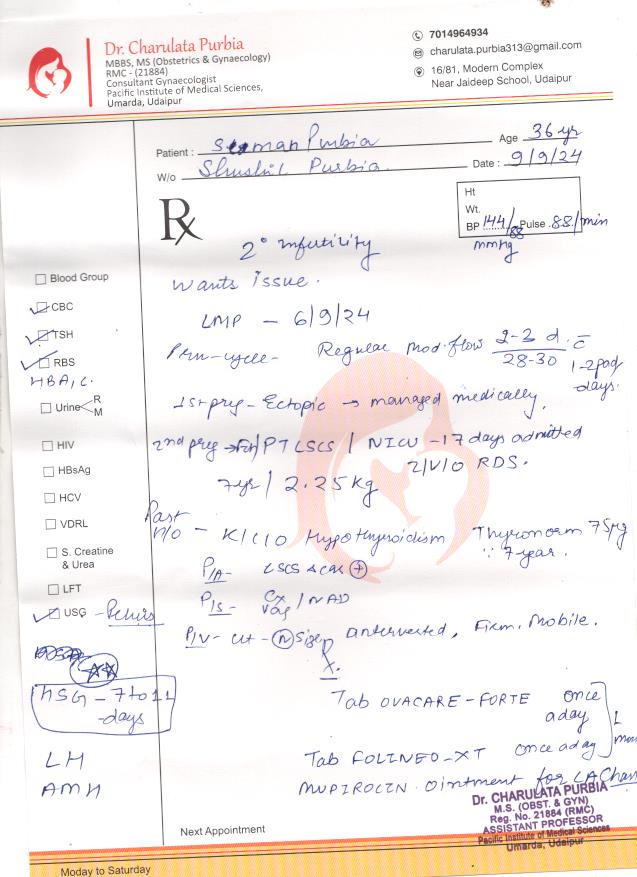 Dr. Charulata Purbia
MBBS, MS (Obstetrics & Gynaecology)
RMC - (21884)
Consultant Gynaecologist
Pacific Institute of Medical Sciences,
Umarda, Udaipur
7014964934
charulata.purbia313@gmail.com
16/81, Modern Complex
Near Jaideep School, Udaipur
Patient : Purbia Age 36 yr
W/o Shushil Purbia Date : 9/9/24
Ht
Wt.
BP 144/88 Pulse 88/min
mmHg
Rx
2° infertility
Wants Issue.
LMP - 6/9/24
cycle - Regular Mod. flow 2-3 d. c̄
28-30 1-2 pad
days.
1st preg - Ectopic → managed medically.
2nd preg → PTLSCS / NICU - 17 days admitted
I/V/O RDS.
7yr / 2.25 Kg
Past
H/O - K/C/O Hypothyroidism Thyronorm 75µg
∵ 7 year.
P/A - LSCS scar +
P/S - Cx
Vag / NAD
P/V - Ut - (N) Size, anteverted, Firm. Mobile.
Rx.
Tab OVACARE-FORTE once
a day
Tab FOLINEO-XT once a day
MUPIROCIN Ointment for LA
Blood Group
CBC
TSH
RBS
HBA1C.
Urine R
M
HIV
HBsAg
HCV
VDRL
S. Creatine
& Urea
LFT
USG - Pelvis
HSG - 7 to 11
days
LH
AMH
Dr. CHARULATA PURBIA
M.S. (OBST. & GYN)
Reg. No. 21884 (RMC)
ASSISTANT PROFESSOR
Pacific Institute of Medical Sciences
Umarda, Udaipur
Next Appointment
Moday to Saturday